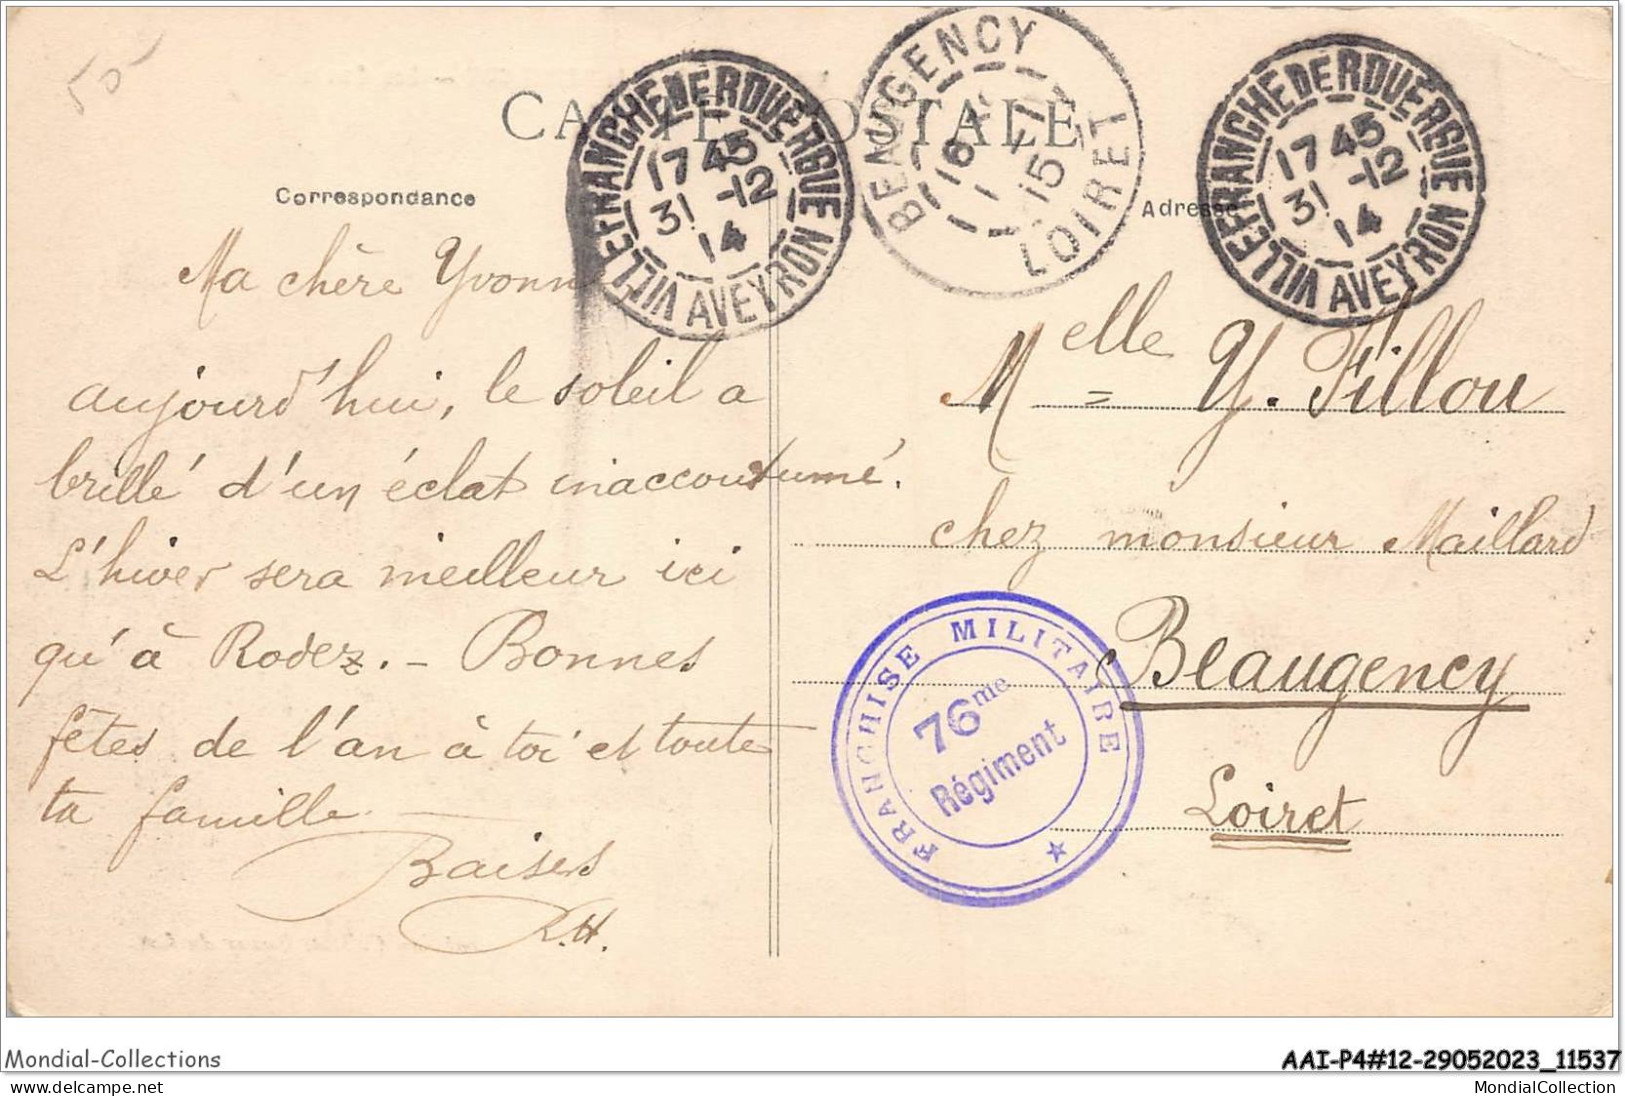 50
CARTE POSTALE
VILLEFRANCHE DE ROUERGUE
17 45
31 -12
14
AVEYRON
BEAUGENCY
18
1
15
LOIRET
VILLEFRANCHE DE ROUERGUE
17 45
31 -12
14
AVEYRON
Correspondance
Ma chère Yvonn
aujourd'hui, le soleil a
brillé d'un éclat inaccoutumé.
L'hiver sera meilleur ici
qu'à Rodez. - Bonnes
fêtes de l'an à toi et toute
ta famille
Baisers
R.H.
Adresse
Melle = Y. Fillou
chez monsieur Maillard
Beaugency
Loiret
FRANCHISE MILITAIRE
76me
Régiment
Mondial-Collections
delcampe.net
AAI-P4#12-29052023_11537
MondialCollection